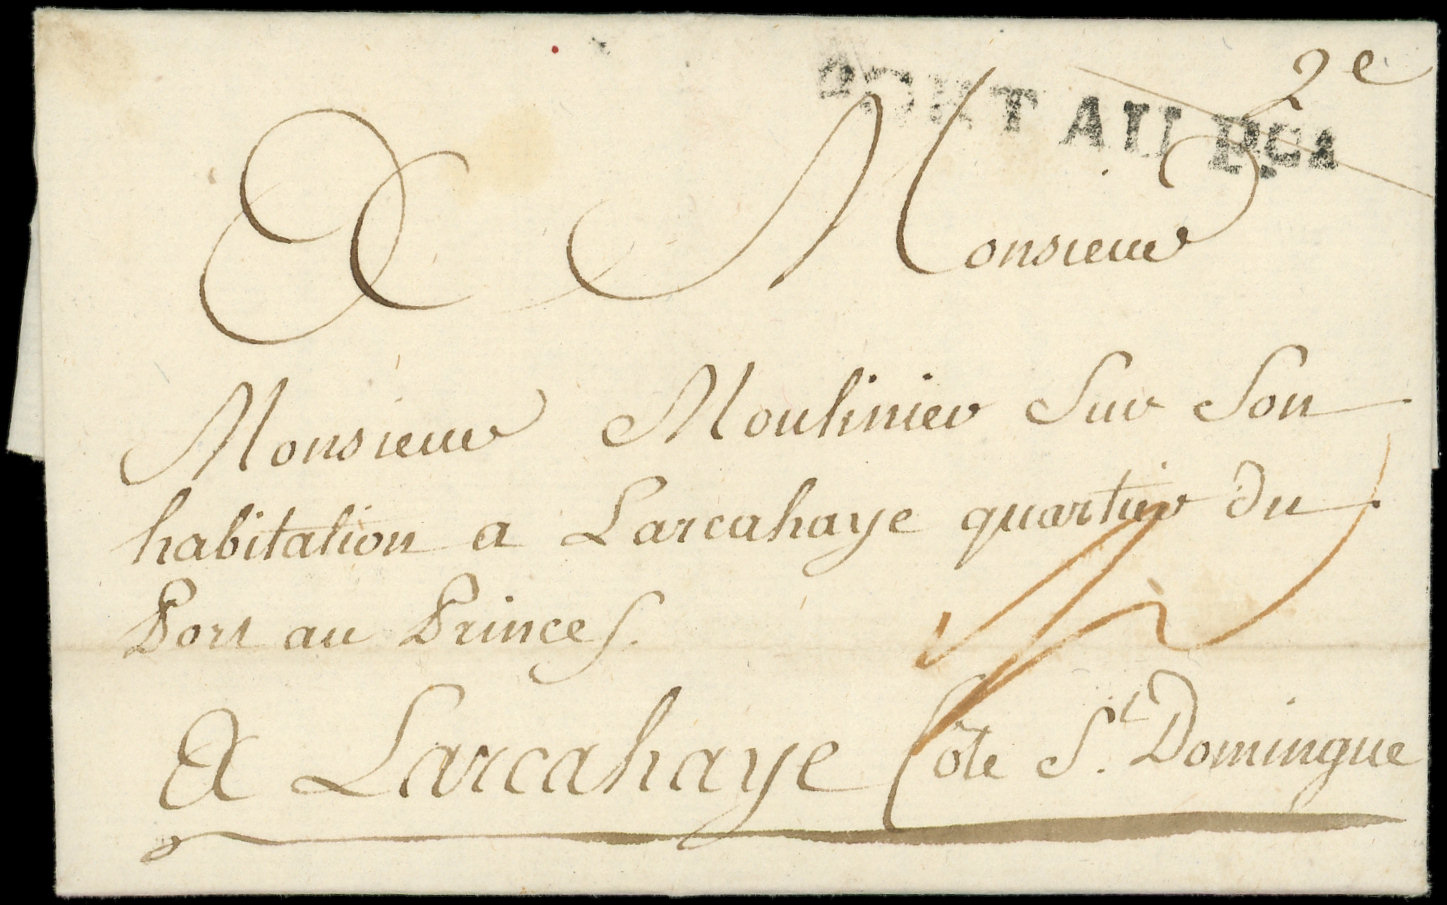 2e
PORT AU P.CA
A Monsieur
Monsieur Moulinier Sur Son
habitation a Larcahaye quartier du
Port au Princes.
A Larcahaye Côte St. Domingue